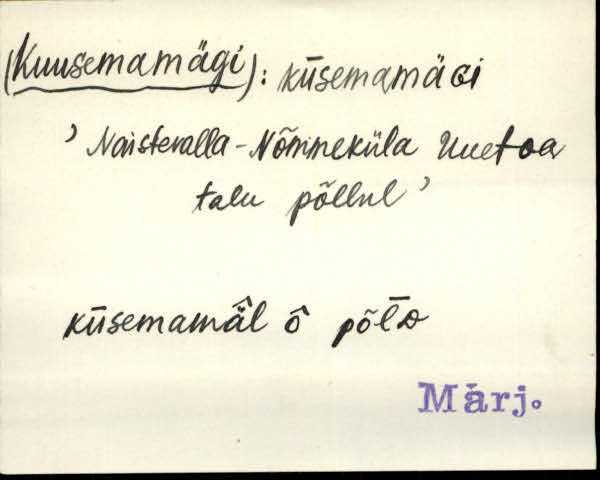 (Kuusemamägi): kūsemamäɢi
’ Naistevalla-Nõmmeküla Uuetoa
talu põllul ’
kūsemamä̂l ô põl̄ᴅ
Märj.